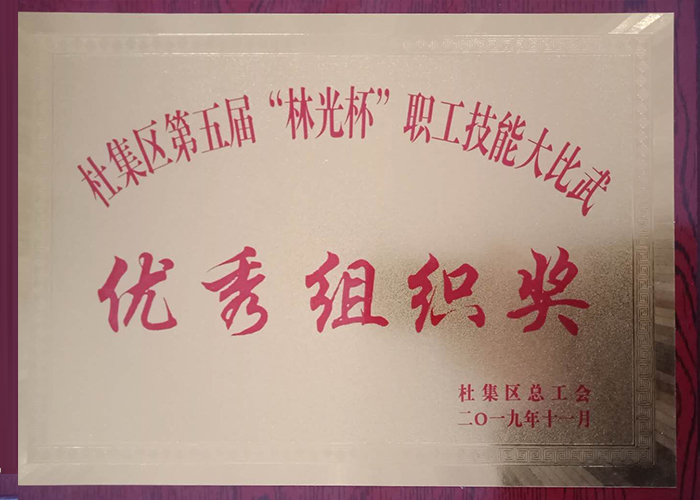 杜集区第五届“林光杯”职工技能大比武
优秀组织奖
杜集区总工会
二〇一九年十一月